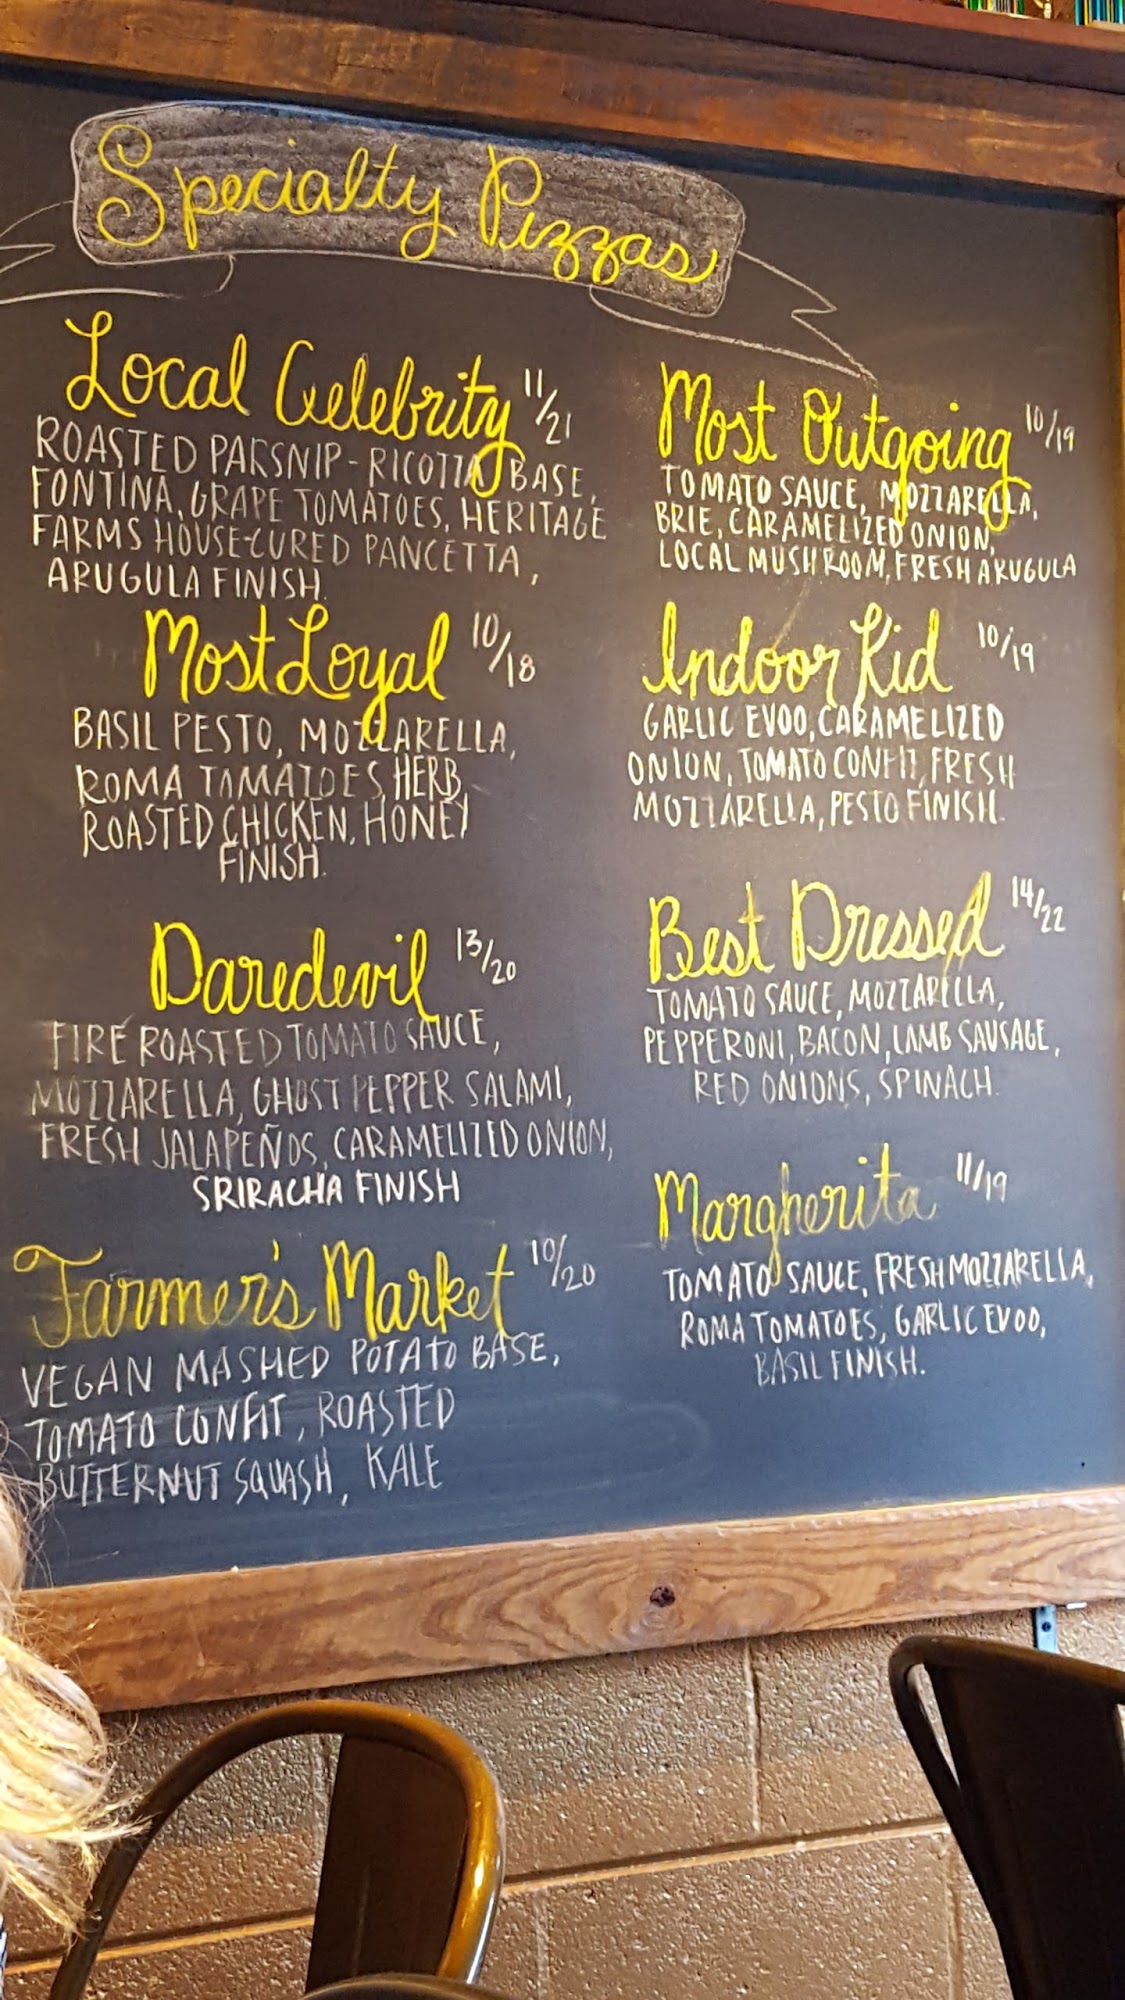 Specialty Pizzas
Local Celebrity 11/21
ROASTED PARSNIP-RICOTTA BASE,
FONTINA, GRAPE TOMATOES, HERITAGE
FARMS HOUSE-CURED PANCETTA,
ARUGULA FINISH.
Most Loyal 10/18
BASIL PESTO, MOZZARELLA,
ROMA TOMATOES, HERB
ROASTED CHICKEN, HONEY
FINISH.
Daredevil 13/20
FIRE ROASTED TOMATO SAUCE,
MOZZARELLA, GHOST PEPPER SALAMI,
FRESH JALAPEÑOS, CARAMELIZED ONION,
SRIRACHA FINISH
Farmer's Market 10/20
VEGAN MASHED POTATO BASE,
TOMATO CONFIT, ROASTED
BUTTERNUT SQUASH, KALE
Most Outgoing 10/19
TOMATO SAUCE, MOZZARELLA,
BRIE, CARAMELIZED ONION,
LOCAL MUSHROOM, FRESH ARUGULA
Indoor Kid 10/19
GARLIC EVOO, CARAMELIZED
ONION, TOMATO CONFIT, FRESH
MOZZARELLA, PESTO FINISH.
Best Dressed 14/22
TOMATO SAUCE, MOZZARELLA,
PEPPERONI, BACON, LAMB SAUSAGE,
RED ONIONS, SPINACH.
Margherita 11/19
TOMATO SAUCE, FRESH MOZZARELLA,
ROMA TOMATOES, GARLIC EVOO,
BASIL FINISH.